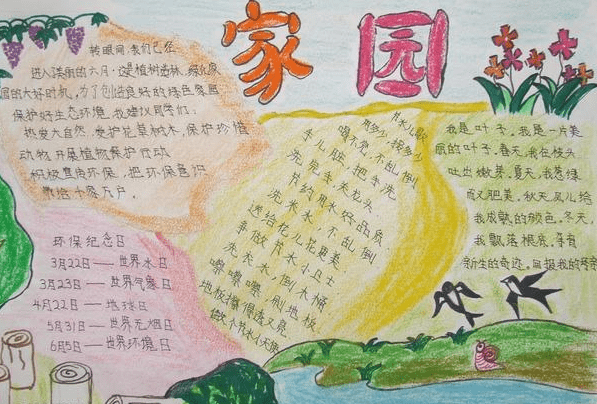 家园
转眼间,我们已经
进入美丽的六月,这是植树造林、绿化家
园的大好时机,为了创造良好的绿色家园
保护好生态环境,我建议同学们:
热爱大自然,爱护花草树木,保护珍惜
动物,开展植物保护行动
积极宣传环保,把环保意识
带给千家万户。
环保纪念日
3月22日——世界水日
3月23日——世界气象日
4月22日——地球日
5月31日——世界无烟日
6月5日——世界环境日
节水儿歌
用多少,接多少
喝不完,不乱倒
手儿脏,把手洗
洗完手,关龙头
节约用水好品质
洗米水,不乱倒
送给花儿花更美
争做节水小卫士
洗衣水,倒大桶
嚓嚓嚓,刷地板
地板擦得透又亮
做个节水小天使
我是叶子,我是一片美
丽的叶子,春天,我在枝头
吐出嫩芽,夏天,我葱绿
而又肥美,秋天,风儿给
我成熟的颜色,冬天,
我飘落根底,寻着
新生的奇迹,回报我的母亲